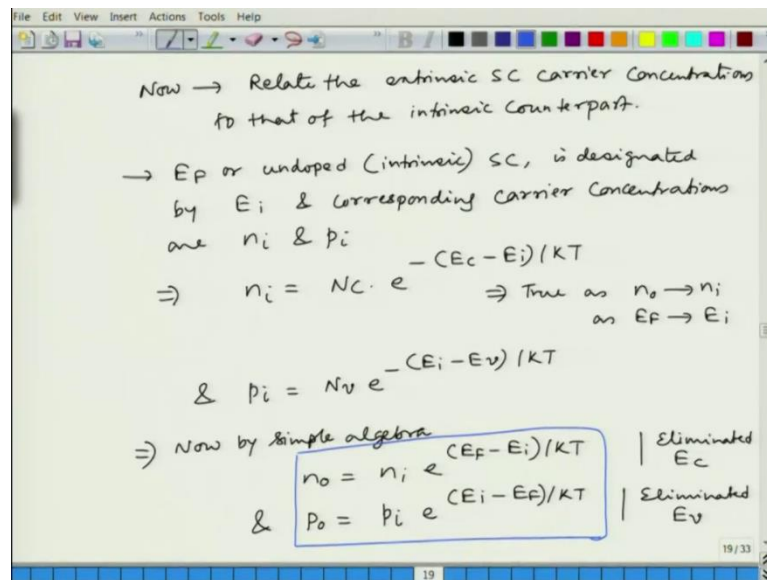 File Edit View Insert Actions Tools Help
Now → Relate the extrinsic SC carrier concentrations
to that of the intrinsic counterpart.
→ EF or undoped (intrinsic) SC, is designated
by Ei & corresponding carrier concentrations
are ni & pi
⇒ ni = Nc. e^-(Ec-Ei)/KT ⇒ True as no → ni
as EF → Ei
& pi = Nv e^-(Ei-Ev)/KT
⇒ Now by simple algebra
no = ni e^(EF-Ei)/KT | Eliminated Ec
& po = pi e^(Ei-EF)/KT | Eliminated Ev
19/33
19